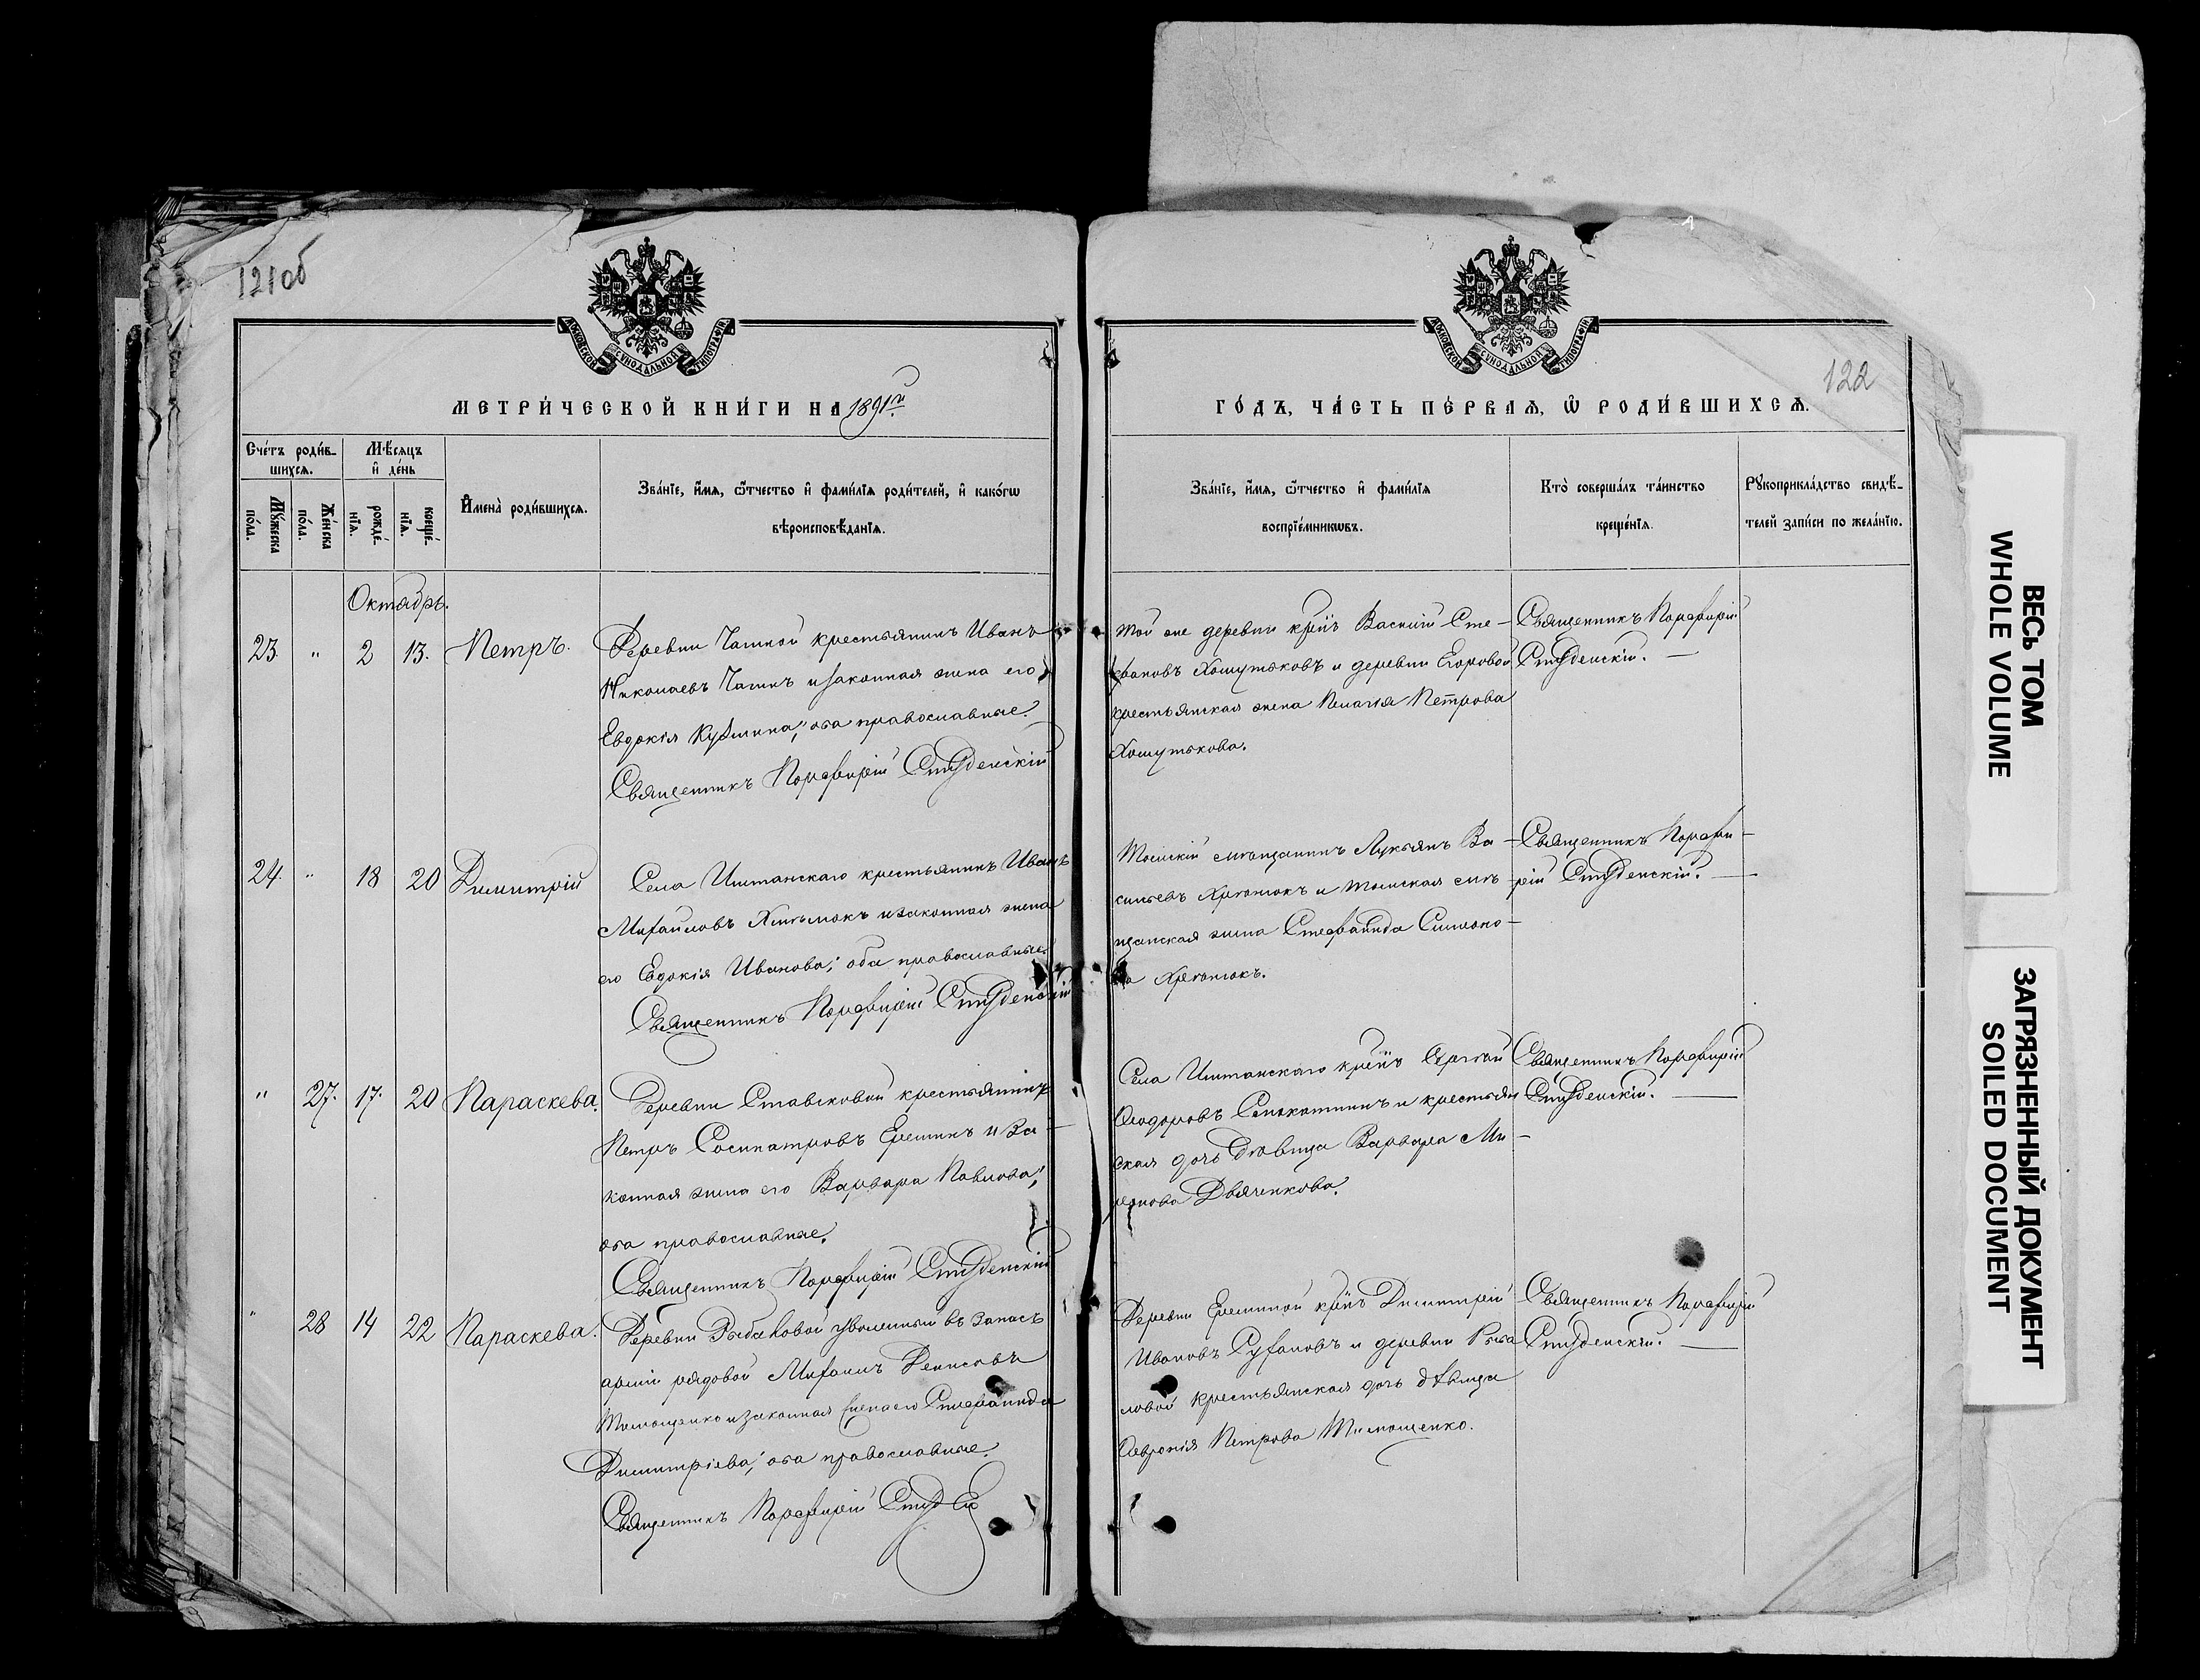 121об
МОСКОВСКОЙ СѴНОДАЛЬНОЙ ТИПОГРАФІИ
МЕТРИ́ЧЕСКОЙ КНИ́ГИ НА 1891й
Сче́тъ роди́в-
шихсѧ.
Мѣ́сѧцъ
и҆ де́нь
Мꙋ́жеска
по́ла.
Же́нска
по́ла.
рожде́-
нїѧ.
креще́-
нїѧ.
И҆мена̀ роди́вшихсѧ.
Зва́нїе, и҆́мѧ, ѻ҆́тчество и҆ фами́лїѧ роди́телей, и҆ како́гѡ
вѣроисповѣ́данїѧ.
Октябрь.
23. " 2 13. Петръ.
Деревни Чагиной крестьянинъ Иванъ
Николаевъ Чагинъ и законная жена его
Евдокія Кузмина; оба православные.
Священникъ Порфирій Студенскій
24. " 18 20 Димитрій
Села Иштанскаго крестьянинъ Иванъ
Михайловъ и законная жена
его Евдокія Иванова; оба православные.
Священникъ Порфирій Студенскій
" 27. 17. 20 Параскева.
Деревни Ставсковой крестьянинъ
Петръ Сосипатровъ Еремин и за-
конная жена его Варвара Павлова;
оба православные.
Священникъ Порфирій Студенскій
" 28 14 22 Параскева.
Деревни Рыбаловой уволенный въ запасъ
арміи рядовой Михаилъ Денисовъ
Тимощенко и законная жена его Стефанида
Димитріева; оба православные.
Священникъ Порфирій Студ
122
МОСКОВСКОЙ СѴНОДАЛЬНОЙ ТИПОГРАФІИ
ГО́ДЪ, ЧА́СТЬ ПЕ́РВАѦ, Ѡ҆ РОДИ́ВШИХСѦ.
Зва́нїе, и҆́мѧ, ѻ҆́тчество и҆ фами́лїѧ
воспрїе́мникѡвъ.
Кто̀ соверша́лъ та́инство
креще́нїѧ.
Рꙋкоприкла́дство свидѣ́-
телей за́писи по жела́нїю.
той же деревни кр–нъ Василій Сте-
фановъ Хошутьковъ и деревни Егоровой
крестьянская жена Пелагія Петрова
Хошутькова.
Священникъ Порфирій
Студенскій.
Томскій мѣщанинъ Лукьянъ Ва-
сильевъ и томская мѣ-
щанская жена Стефанида Симоно-
ва
Священникъ Порфи-
рій Студенскій.
Села Иштанскаго кр–нъ Сергѣй
Ѳеодоровъ и крестьян
ская дочь дѣвица Варвара Ми-
ронова Двяченкова.
Священникъ Порфирій
Студенскій.
Деревни Ереминой кр–нъ Димитрій
Ивановъ Сухановъ и деревни Рыба
ловой крестьянская дочь дѣвица
Ѳевронія Петрова Тимощенко.
Священникъ Порфирій
Студенскій.
ВЕСЬ ТОМ
WHOLE VOLUME
ЗАГРЯЗНЕННЫЙ ДОКУМЕНТ
SOILED DOCUMENT